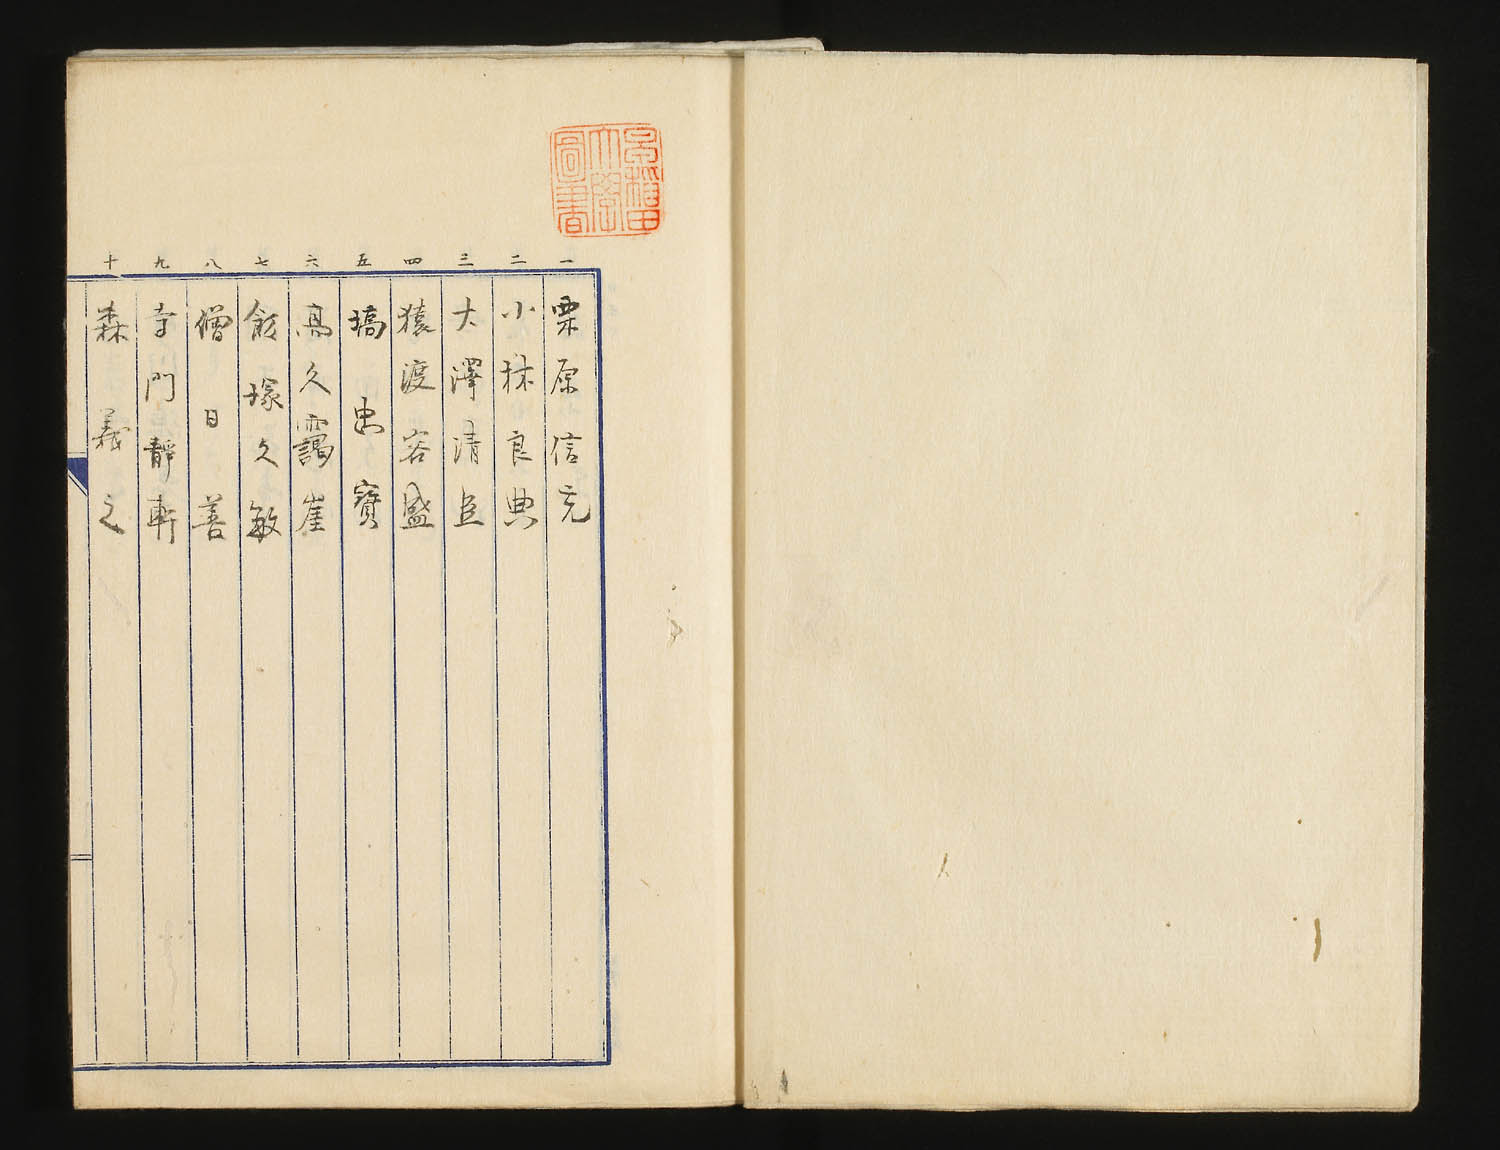 早稲田
大學
圖書
一 栗原信充
二 小林良典
三 大澤清臣
四 猿渡容盛
五 塙忠寶
六 高久靄崖
七 飯塚久敏
八 僧日善
九 寺門靜軒
十 森義之